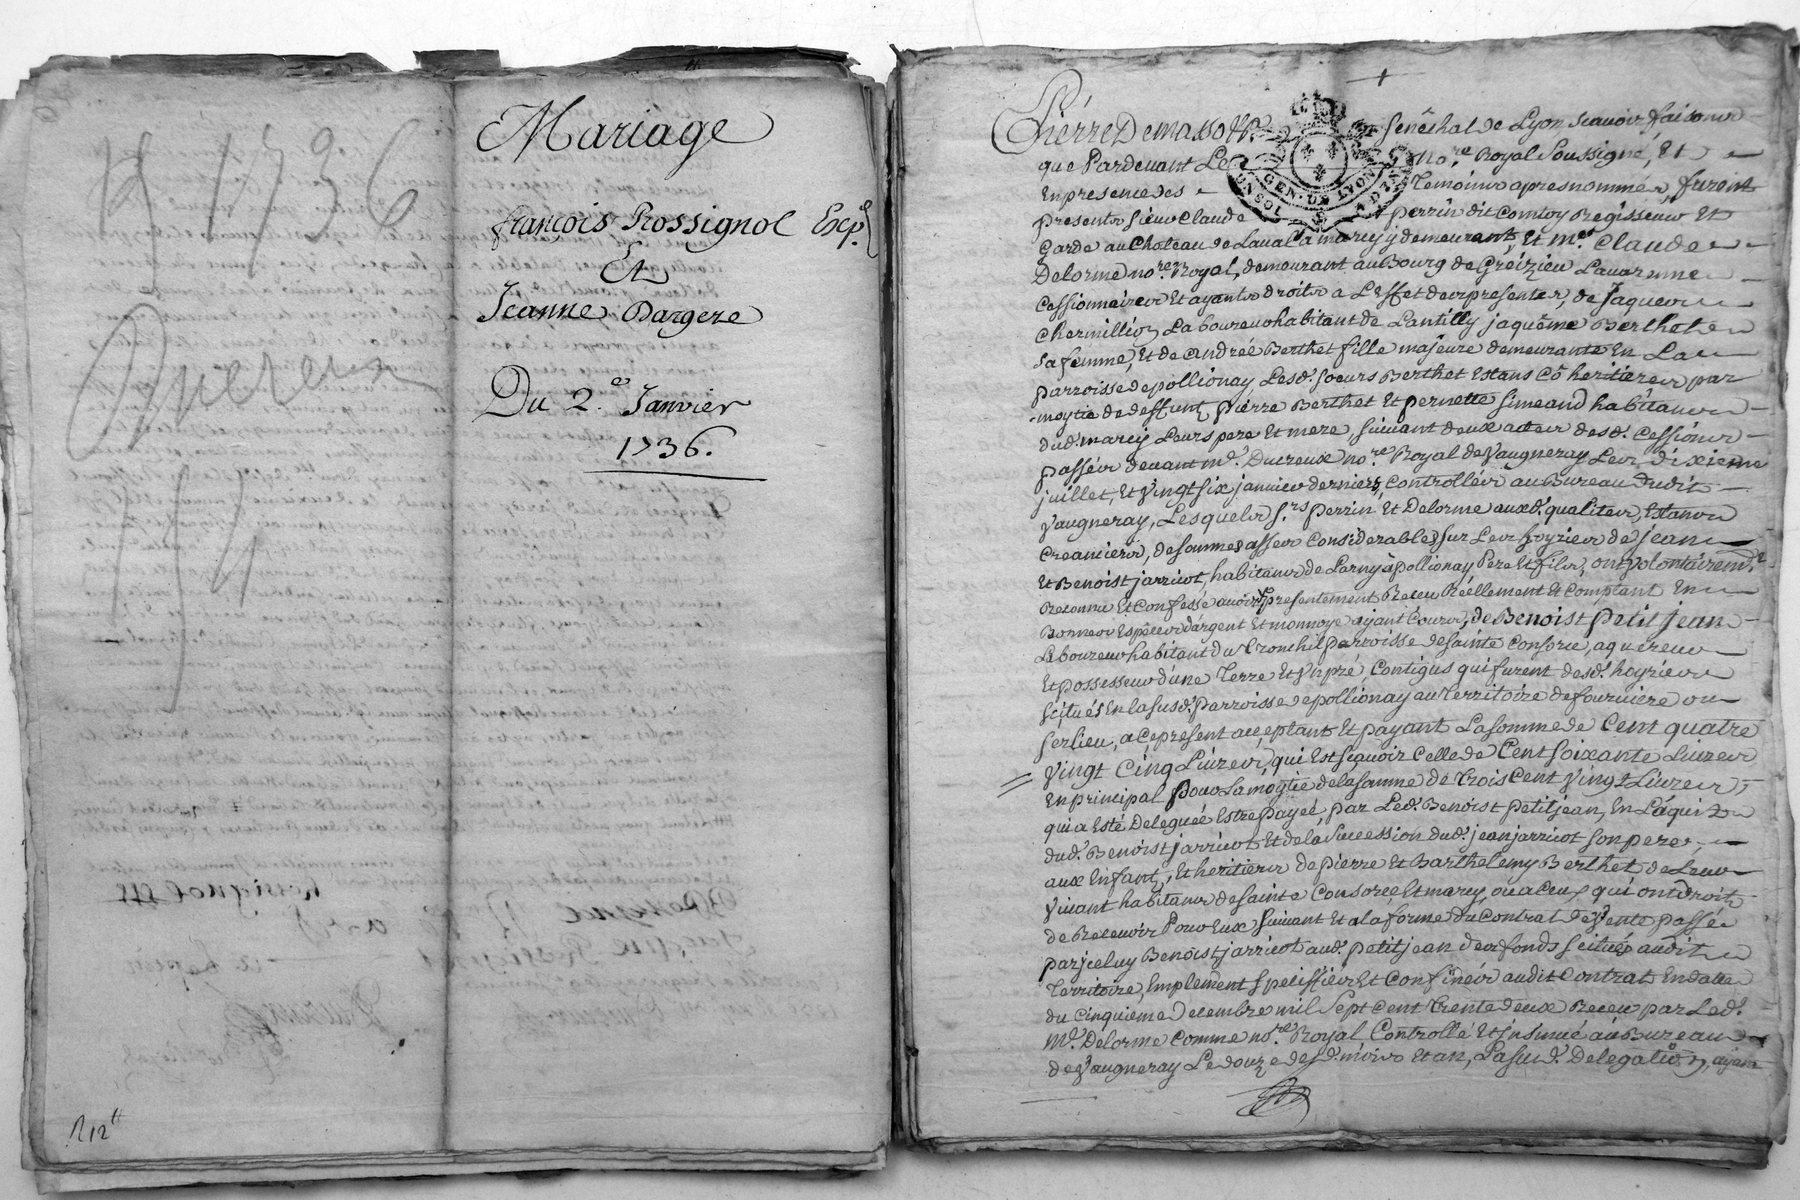 1736
Mariage
françois Rossignol Exp.
Et
Jeanne Bargere
Du 2.e Janvier
1736.
R 12 tt
Pierre Demasso Senêchal de Lyon scauoir faisons
que Pardeuant Le No.re Royal Soussigné, Et
En presence des Temoins apres nommés, furent
presents sieur Claude perrin dit Comtoy Regisseur Et
Garde au Chateau de Laual a marcy y demeurant, Et m.e Claude
Delorme no.re Royal, demeurant au Bourg de Greizieu Lauarenne
Cessionnaires Et ayants droits a L'effet des presentes, de Jaques
Chermillion Laboureur habitant de Lantilly jaquême Berthet
sa femme, Et de andrée Berthet fille majeure demeurante En La
parroisse de pollionay Lesd. soeurs Berthet Estans Cô heritieres par
moytie de deffunt pierre Berthet Et pernette simeand habitans
dud. marcy Leurs pere Et mere, suiuant deux actes desd. Cessions
passés deuant m.e Ducreux no.re Royal de Vaugneray Les dixieme
juillet, Et Vingt six januier derniers, Controllés au Bureau dudit
Vaugneray, Lesquels s.rs perrin Et Delorme auxd. qualites, Estans
Creanciers, de sommes asses Considerables sur Les hoyries de jean
Et Benoist jarricot, habitans de Larny à pollionay Pere Et fils, ont Volontairem.t
Reconnu Et Confessé auoir presentement Receu Réellement Et Comptant En
Bonnes Espêces d'argent Et monnoye ayant Cours, de Benoist petit jean
Laboureur habitant du Cronchil parroisse de sainte Consorce, aquereur
Et possesseur d'une Terre Et Vn pré, Contigus qui furent desd. hoyries
scitués En la susd. parroisse de pollionay au Territoire de fourniere ou
serlieu, a ce present acceptant Et payant La somme de Cent quatre
Vingt Cinq Liures, qui Est sçauoir Celle de Cent soixante Liures
En principal pour La moytie de la somme de Trois Cent Vingt Liures,
qui a Esté Deleguée Estre payée, par Led. Benoist petitjean, En L'aquit
dud. Benoist jarricot Et de la succession dud. jean jarricot son pere,
aux Enfant, Et heritiers de pierre Et Barthelemy Berthet de Leur
Viuant habitans de sainte Consorce Et marcy, ou a Ceux qui ont droit
de Receuoir Pour Eux suiuant Et a la forme du Contrat de Vente passé
par iceluy Benoist jarricot aud. petitjean des fonds scitués audit
Territoire, Emplement speciffiés Et Confinés audit Contrat En datte
du Cinquieme decembre mil Sept Cent Trente deux Receu par Led.
M.e Delorme Comme no.re Royal Controllé Et insinué au Bureau
de Vaugneray Le douze desd. mois Et an, La susd. Delegation, ayant